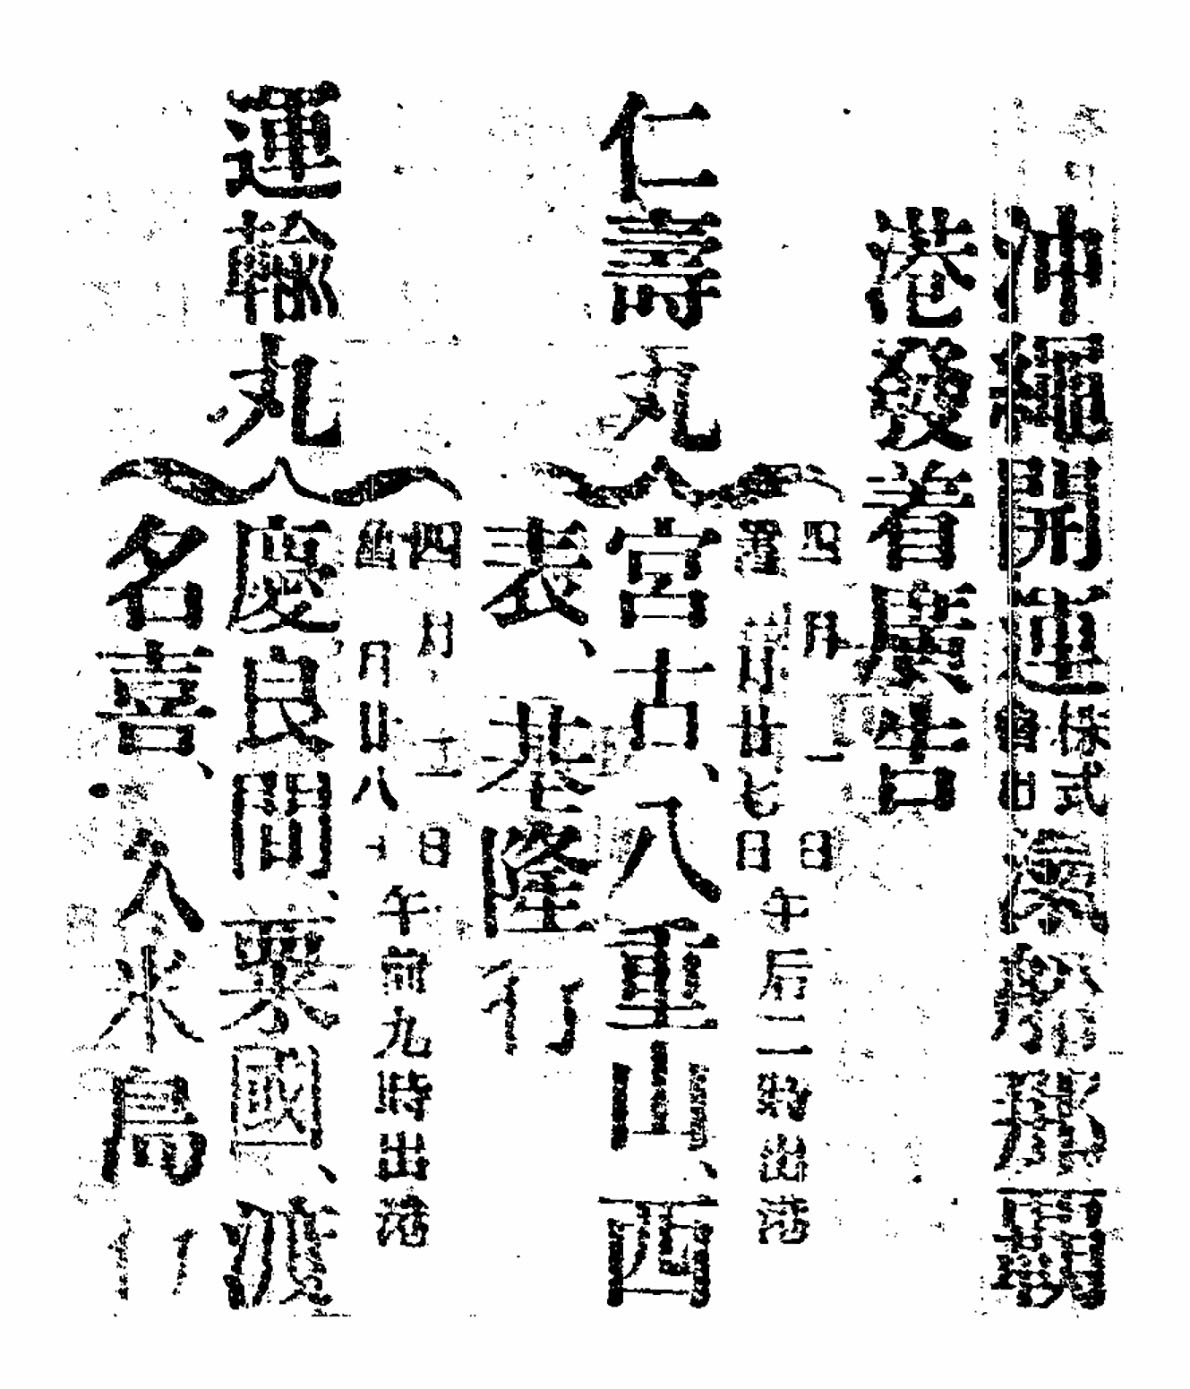 沖繩開運株式會社滊船那覇
港發着廣告
仁壽丸
四月一日
舊 月廿七日
午后二時出港
宮古、八重山、西
表、基隆行
運輸丸
四月二日
舊 月廿八日
午前九時出港
慶良間、粟國、渡
名喜、久米島行